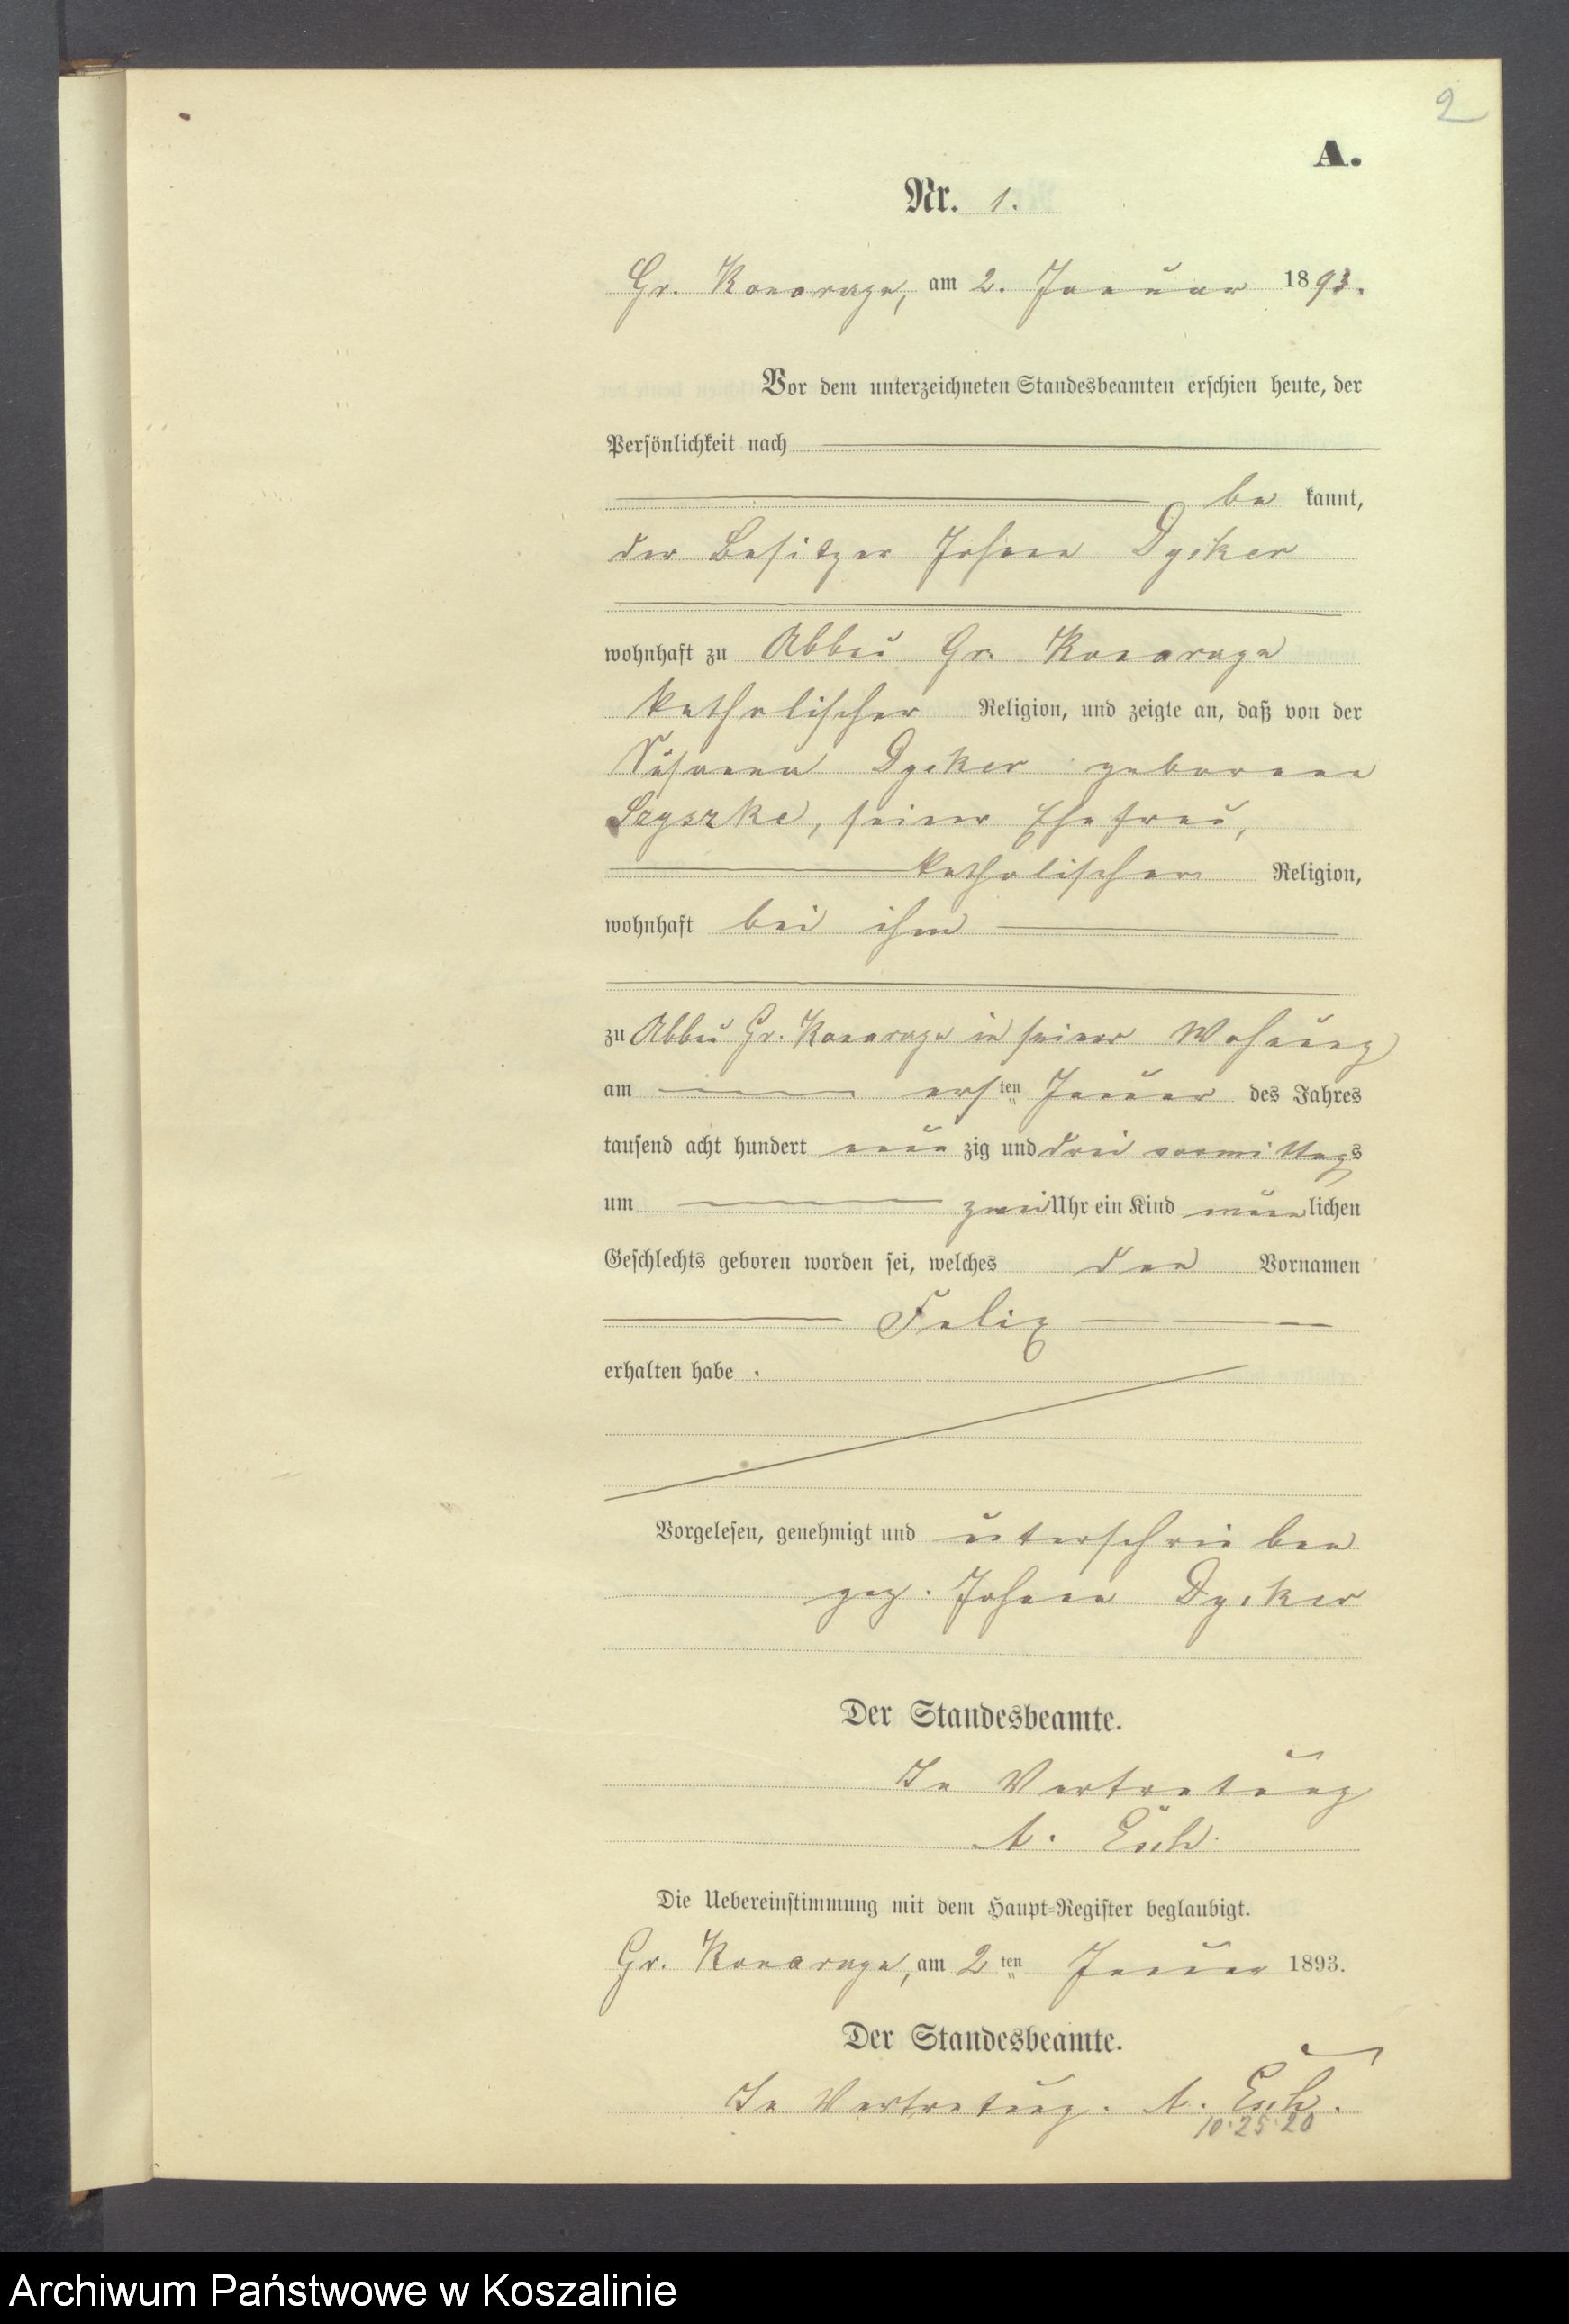 2
A.
Nr. 1.
Gr. Konarzyn, am 2. Januar 1893.
Vor dem unterzeichneten Standesbeamten erschien heute, der
Persönlichkeit nach
be kannt,
der Besitzer Johann Dyiker
wohnhaft zu Abbau Gr. Konarzyn
katholischer Religion, und zeigte an, daß von der
Susanna Dyiker geborenen
Szyszke, seiner Ehefrau,
katholischer Religion,
wohnhaft bei ihm
zu Abbau Gr. Konarzyn in seiner Wohnung
am ersten Januar des Jahres
tausend acht hundert neun zig und drei vormittags
um zwei Uhr ein Kind männlichen
Geschlechts geboren worden sei, welches den Vornamen
Felix
erhalten habe.
Vorgelesen, genehmigt und unterschrieben
gez. Johann Dyiker
Der Standesbeamte.
In Vertretung
A.
Die Uebereinstimmung mit dem Haupt-Register beglaubigt.
Gr. Konarzyn, am 2ten Januar 1893.
Der Standesbeamte.
In Vertretung. A.
10.25.20
Archiwum Państwowe w Koszalinie